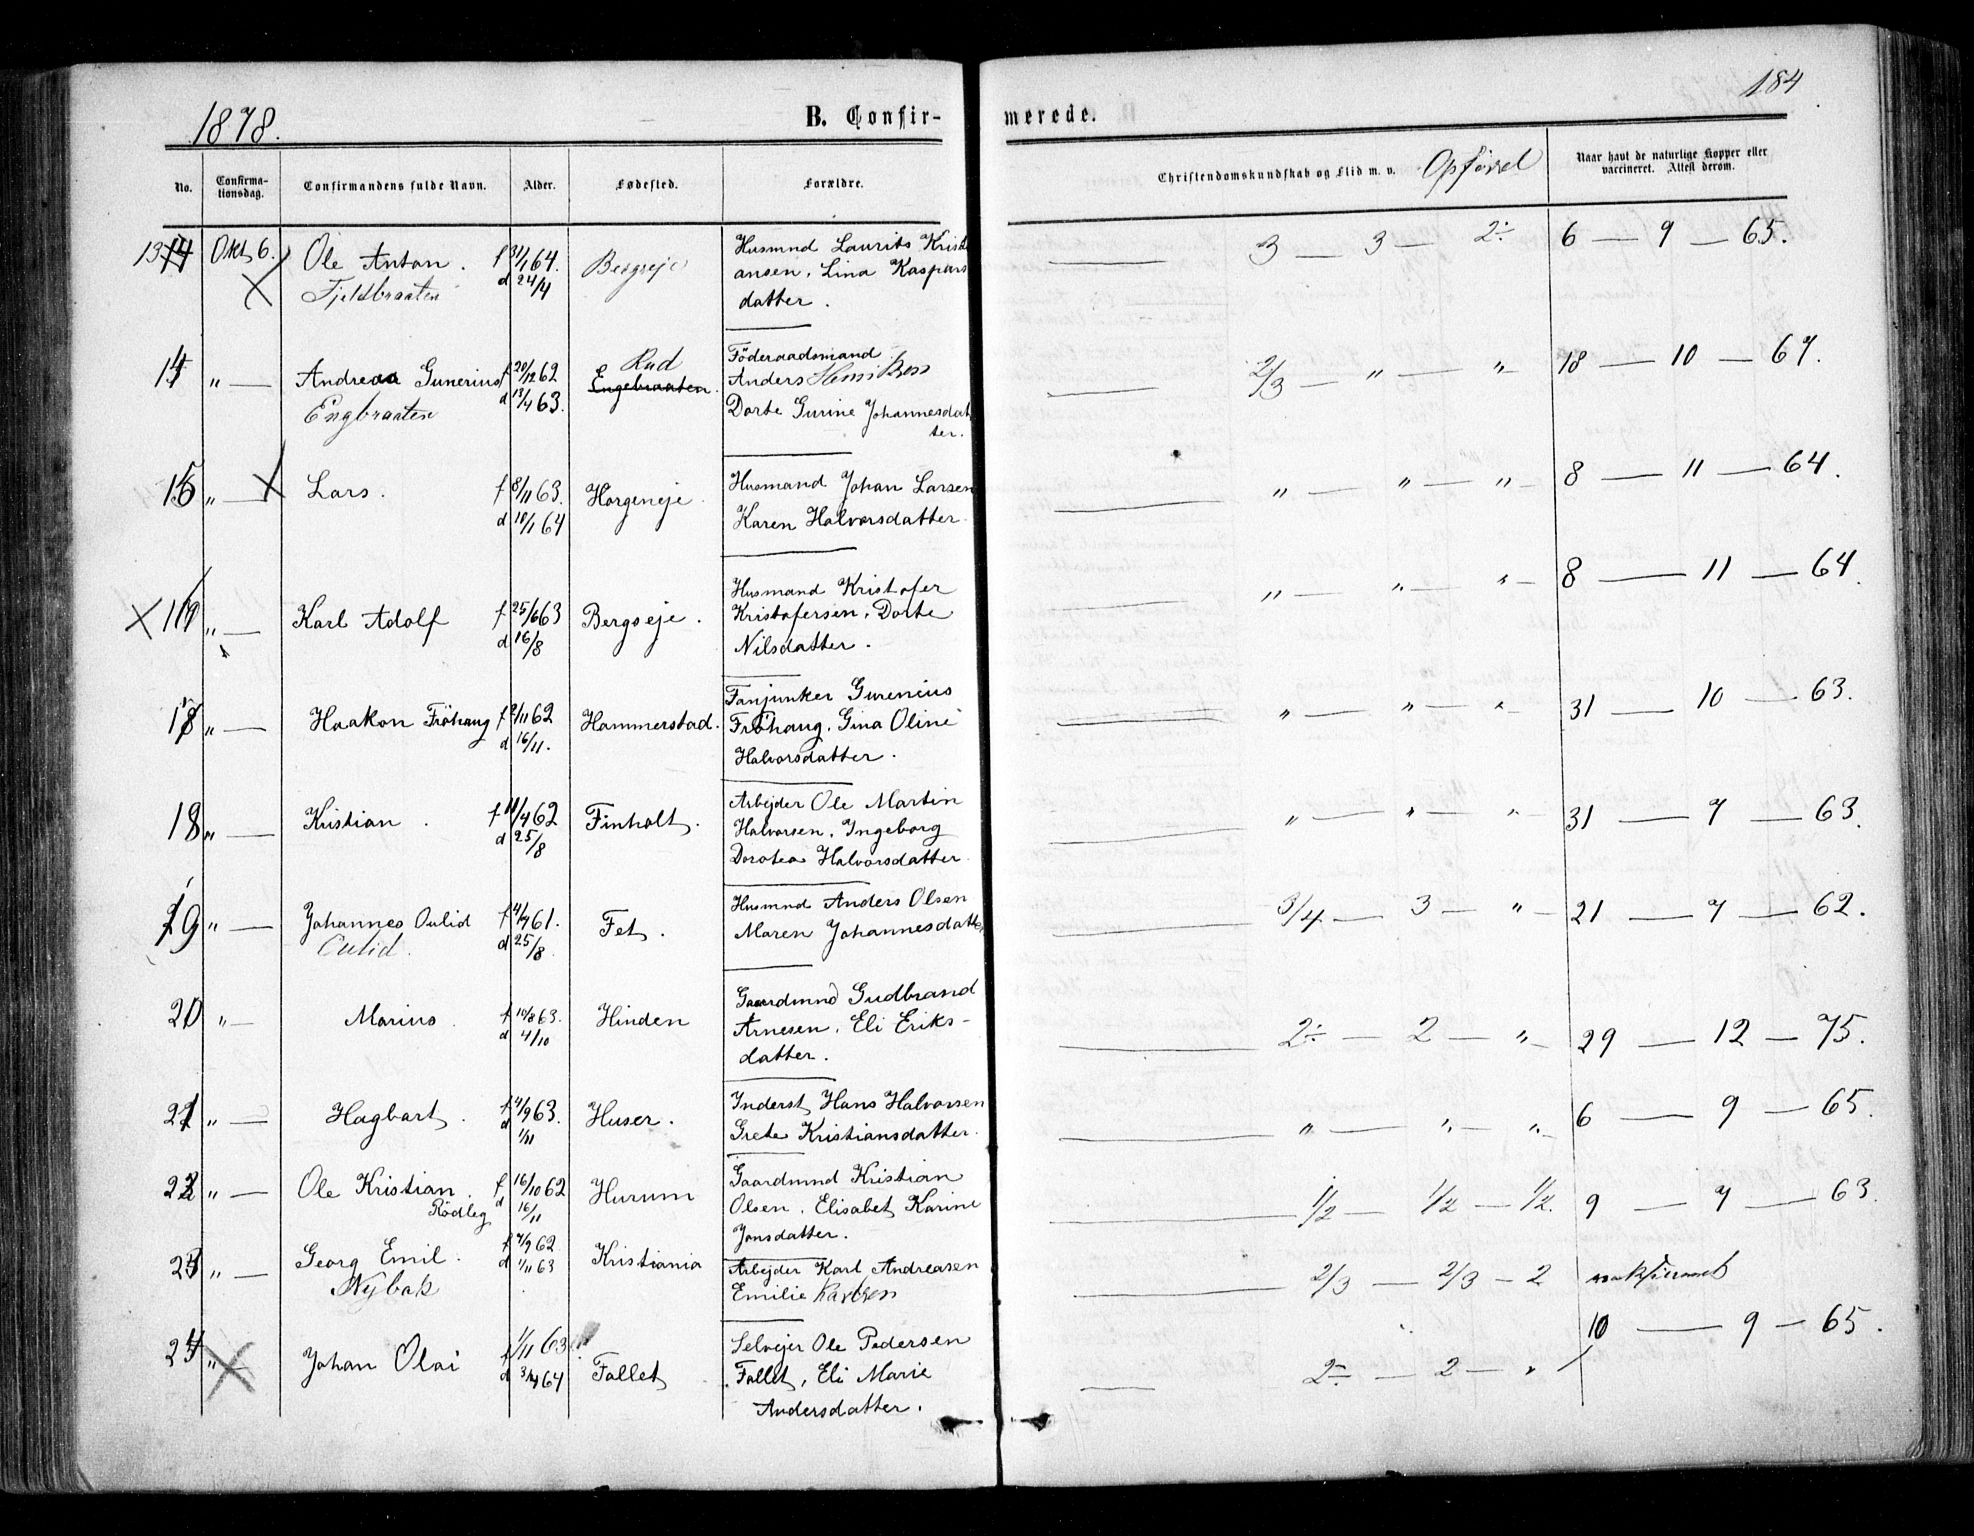 184
1878.
B. Confir-
merede.
No.
Confirma-
tionsdag.
Confirmandens fulde Navn.
Alder.
Fødested.
Forældre.
Christendomskundskab og Flid m. v. Opförsel
Naar havt de naturlige Kopper eller
vaccineret. Attest derom.
13 Okt 6. Ole Anton. f 31/1 64. Bergseje Husmnd Laurits Kristi 3 — 3 — 2÷ 6 — 9 — 65.
Fjeldbraaten d 24/4 ansen, Lina Kaspars
datter.
14 " — Andreas Gunerius f 20/12 62 Rud Föderaadsmand 2/3 — " — " 18 — 10 — 67.
Engbraaten d 13/4 63. Engebraaten. Anders Henriksen
Dorte Gurine Johannesdat
ter.
15 " — Lars. f 8/11 63. Horgeneje. Husmand Johan Larsen " — " — " 8 — 11 — 64.
d 10/1 64 Karen Halvorsdatter.
16 " — Karl Adolf f 25/6 63 Bergseje. Husmand Kristofer " — " — " 8 — 11 — 64.
d 16/8 Kristofersen, Dorte
Nilsdatter.
17 " — Haakon Fröhaug f 2/11 62 Hammerstad. Fanjunker Gurenius " — " — " 31 — 10 — 63.
d 16/11. Fröhaug, Gina Oline
Halvorsdatter.
18 " — Kristian. f 11/4 62 Finholt. Arbejder Ole Martin " — " — " 31 — 7 — 63.
d 25/8 Halvorsen, Ingeborg
Dorotea Halvorsdatter.
19 " — Johannes Oulid f 4/7 61. Fet. Husmnd Anders Olsen 3/4 — 3 — " 21 — 7 — 62.
Oulid. d 25/8 Maren Johannesdatter
20 " — Marius. f 10/8 63. Hinden Gaardmnd Gudbrand 2÷ — 2 — " 29 — 12 — 75.
d 4/10 Arnesen, Eli Eriks-
datter.
21 " — Hagbart. f 4/9 63. Huser. Inderst Hans Halvorsen " — " — " 6 — 9 — 65.
d 1/11 Grete Kristiansdatter.
22 " — Ole Kristian. f 16/10 62 Hurum Gaardmnd Kristian 1/2 — 1/2 — 1/2. 9 — 7 — 63.
Rödleg d 16/11 Olsen, Elisabet Karine
Jonsdatter.
23 " — Georg Emil. f 7/9 62. Kristiania Arbejder Karl Andreasen 2/3 — 2/3 — 2 vaksineret
Nybak d 1/11 63 Emilie Karlsen
24 " — Johan Olai f 1/11 63 Fallet Selvejer Ole Pedersen 2÷ — 2 — " 10 — 9 — 65.
d 3/4 64 Fallet, Eli Marie
Andersdatter.